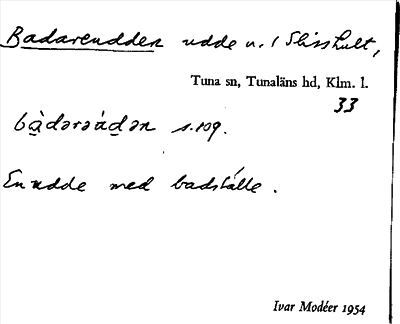 Badareudden udde v. i Slisshult,
Tuna sn, Tunaläns hd, Klm. l.
33
bàdərəúdən s. 109.
En udde med badställe.
Ivar Modéer 1954